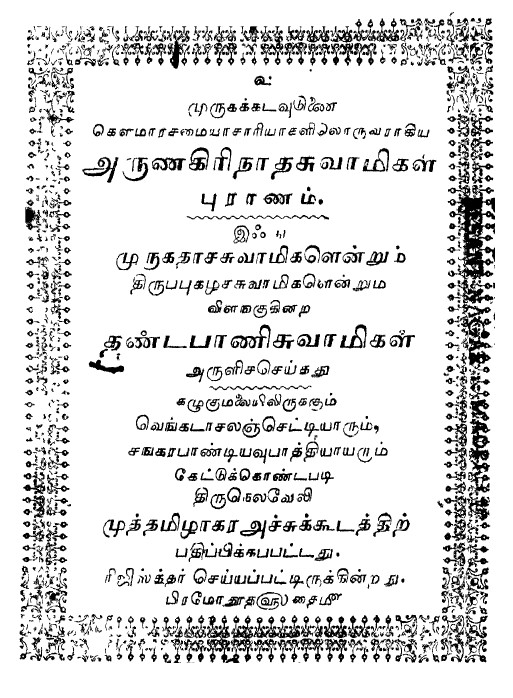 உ
முருகக்கடவுளினை
கௌமாரசமையாசாரியாகளிலொருவராகிய
அருணகிரிநாதசுவாமிகள்
புராணம்.
இஃது
முருகதாசசுவாமிகளென்றும்
திருப்புகழ்சசுவாமிகளென்றும
விளஙகுகினற
தண்டபாணிசுவாமிகள்
அருளிசசெய்தது
கழுகுமலையிலிருககும்
வெங்கடாசலஞ்செட்டியாரும்,
சஙகரபாண்டியவுபாத்தியாயரும்
கேட்டுக்கொண்டபடி
திருநெலவேலி
முத்தமிழாகரஅச்சுக்கூடத்திற்
பதிப்பிக்கபபட்டது.
ரிஜிஸ்த்தர் செய்யப்பட்டிருக்கின்றது.
பிரமோதூதவூ தைமீ